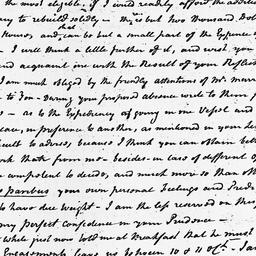 the most eligible. if I could readily afford the addition
ry to rebuild solidly – this is but two thousand. Dol
Houses, and can be but a small part of the Expence of
– I will think a little further of it, and wish you
and acquaint me with the Result of your Reflec
I am much obliged by the friendly attentions of Mr. Marsh
– to You – during your proposed absence write to them for
– as to the Expediency of going in one Vessel and
place, in preference to another, as mentioned in your let
icult to advise, because I think you can obtain bett
York that from me – besides in case of different op
competent to decide, and much more so than ot
s paribus your own personal Feelings and Prude
to have due weight – I am the less reserved on this
my perfect confidence in your Prudence –
While just now told me at Breakfast that he must
Engagements leave us between 10 & 11 oC. – I am